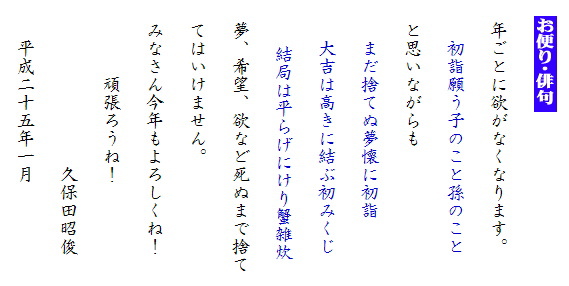 お便り・俳句
年ごとに欲がなくなります。
初詣願う子のこと孫のこと
と思いながらも
まだ捨てぬ夢懐に初詣
大吉は高きに結ぶ初みくじ
結局は平らげにけり蟹雑炊
夢、希望、欲など死ぬまで捨て
てはいけません。
みなさん今年もよろしくね！
頑張ろうね！
久保田昭俊
平成二十五年一月